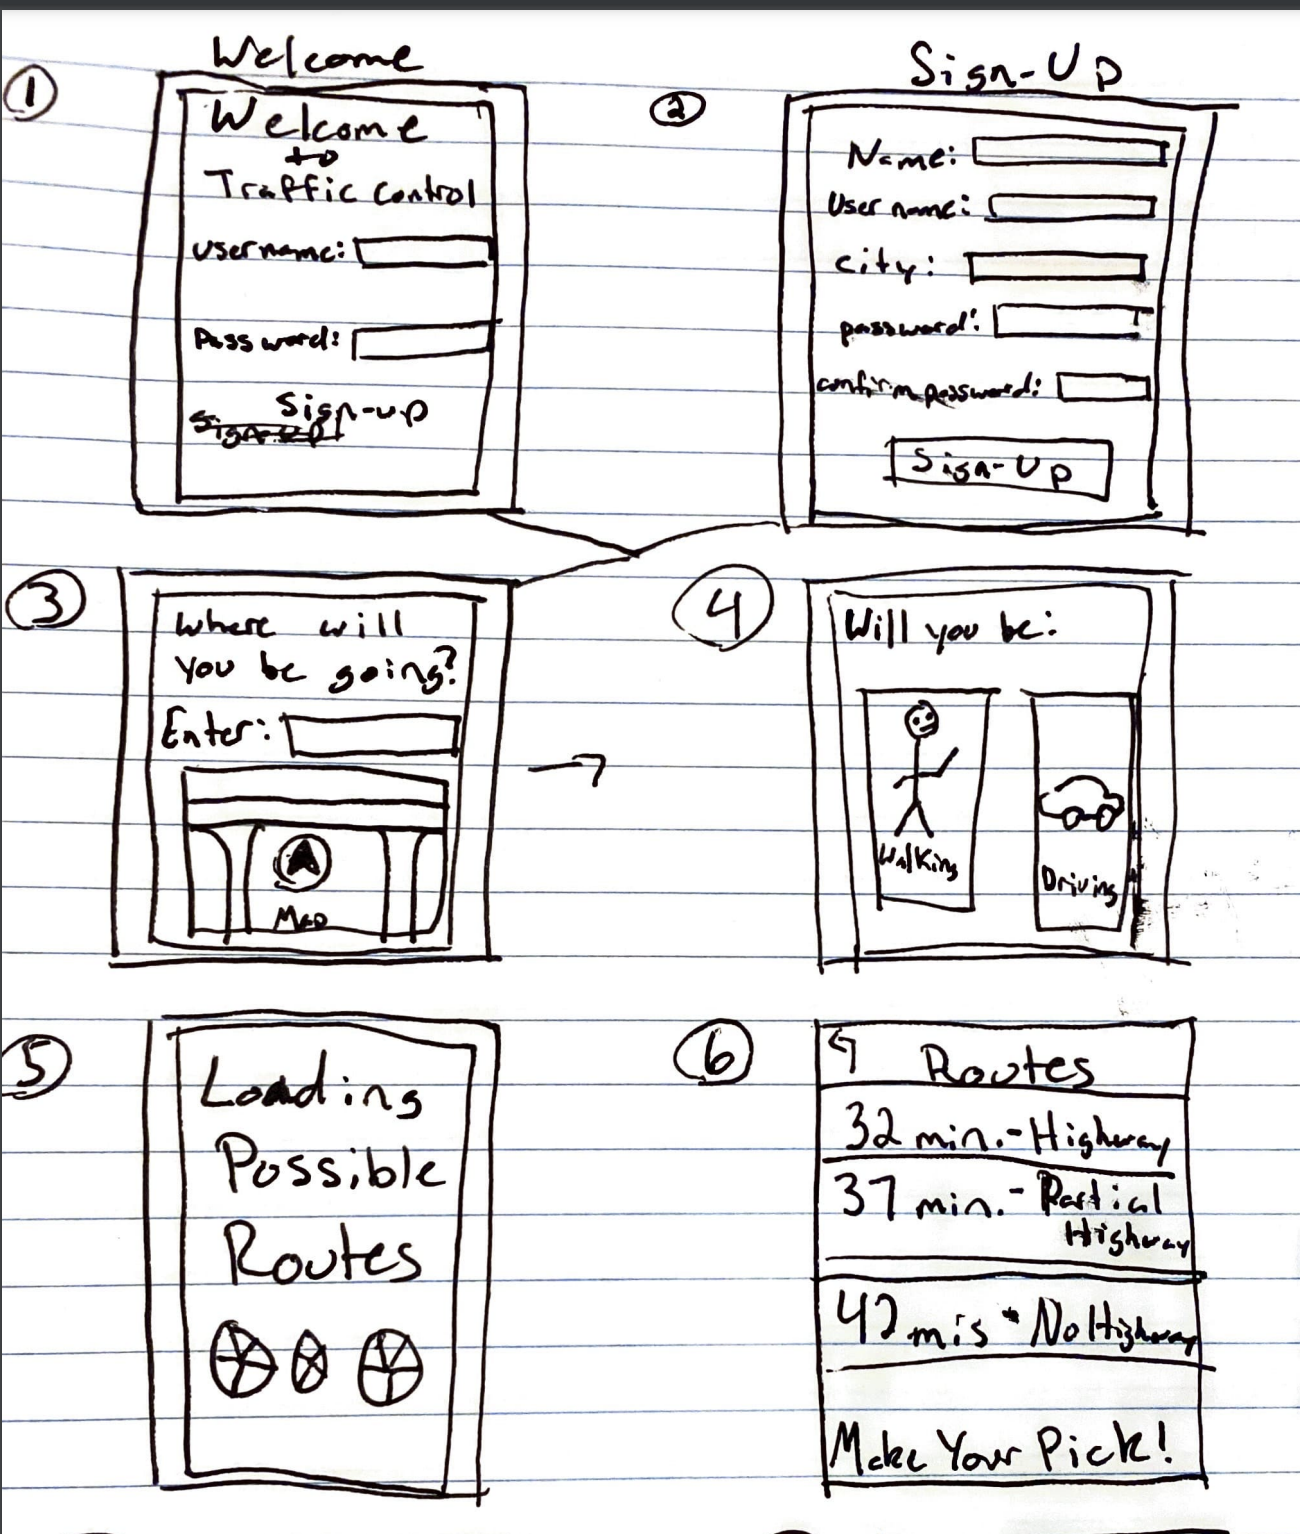 Welcome
1
Welcome
to
Traffic Control
username:
Password:
Sign-up
Sign-up
Sign-Up
2
Name:
Username:
city:
password:
confirm password:
Sign-Up
3
Where will
you be going?
Enter:
Map
4
Will you be:
Walking
Driving
5
Loading
Possible
Routes
6
Routes
32 min.-Highway
37 min.- Partial
Highway
42 mis - No Highway
Make Your Pick!